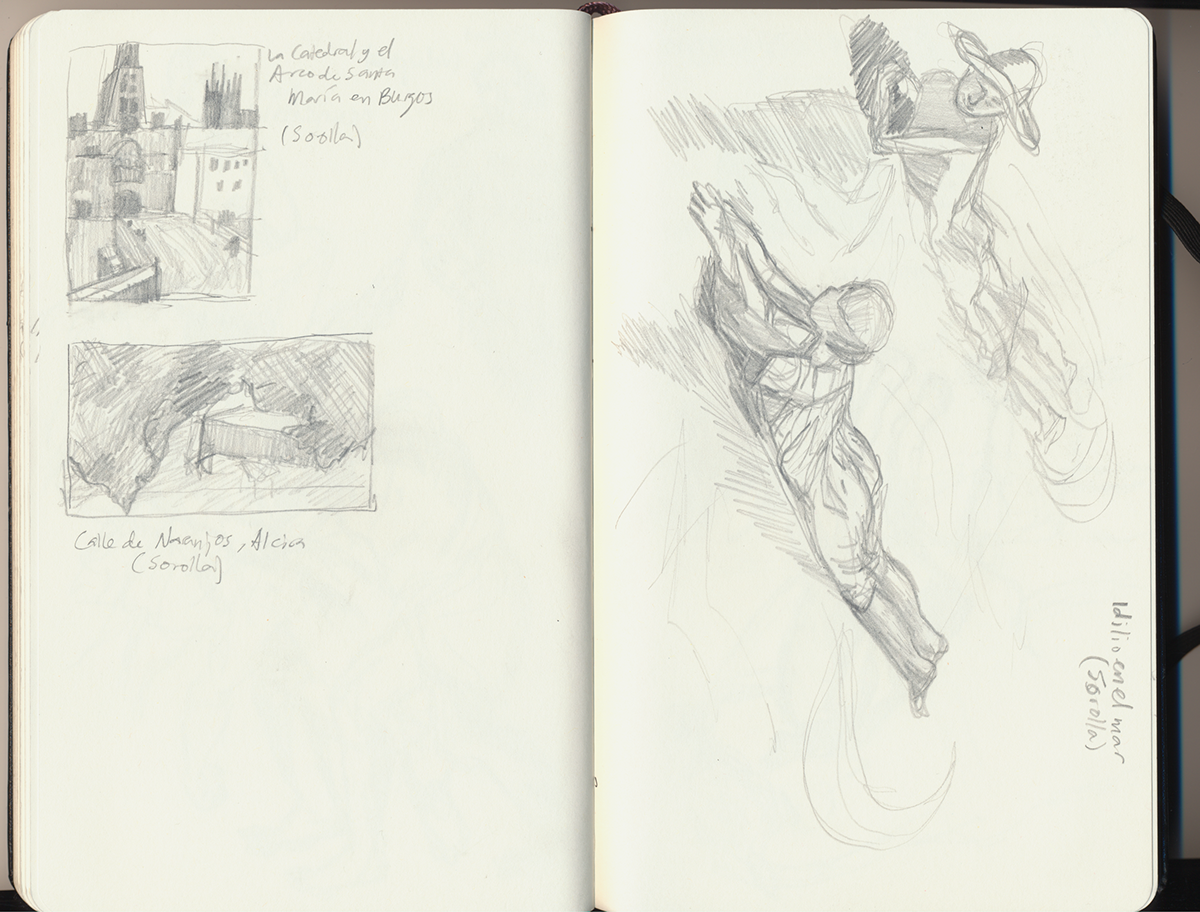 La Catedral y el
Arco de Santa
María en Burgos
(Sorolla)
Calle de Naranjos, Alcira
(Sorolla)
Idilio en el mar
(Sorolla)